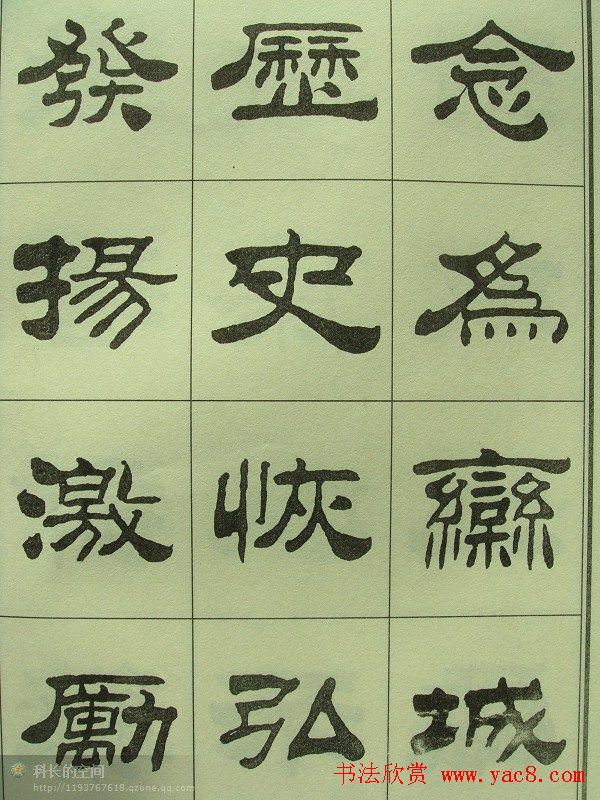 念爲欒城
歷史恢弘
發揚激勵
科长的空间
http://1193767618.qzone.qq.com
书法欣赏 www.yac8.com